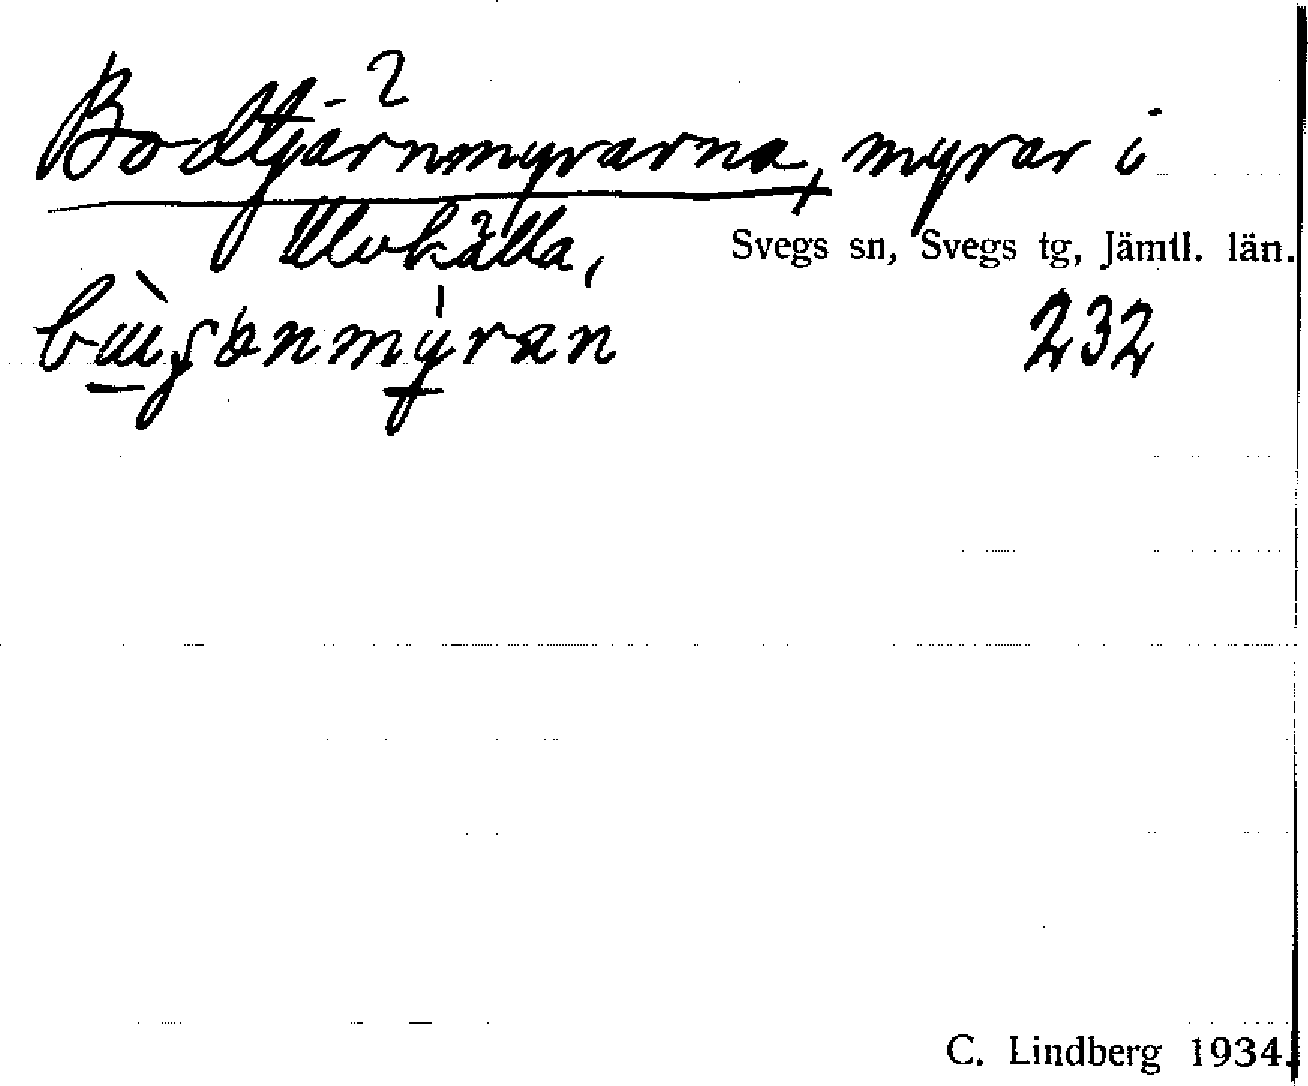 2
Bodtjärnmyrarna, myrar i
Ulvkälla, Svegs sn, Svegs tg, Jämtl. län.
232
C. Lindberg 1934.